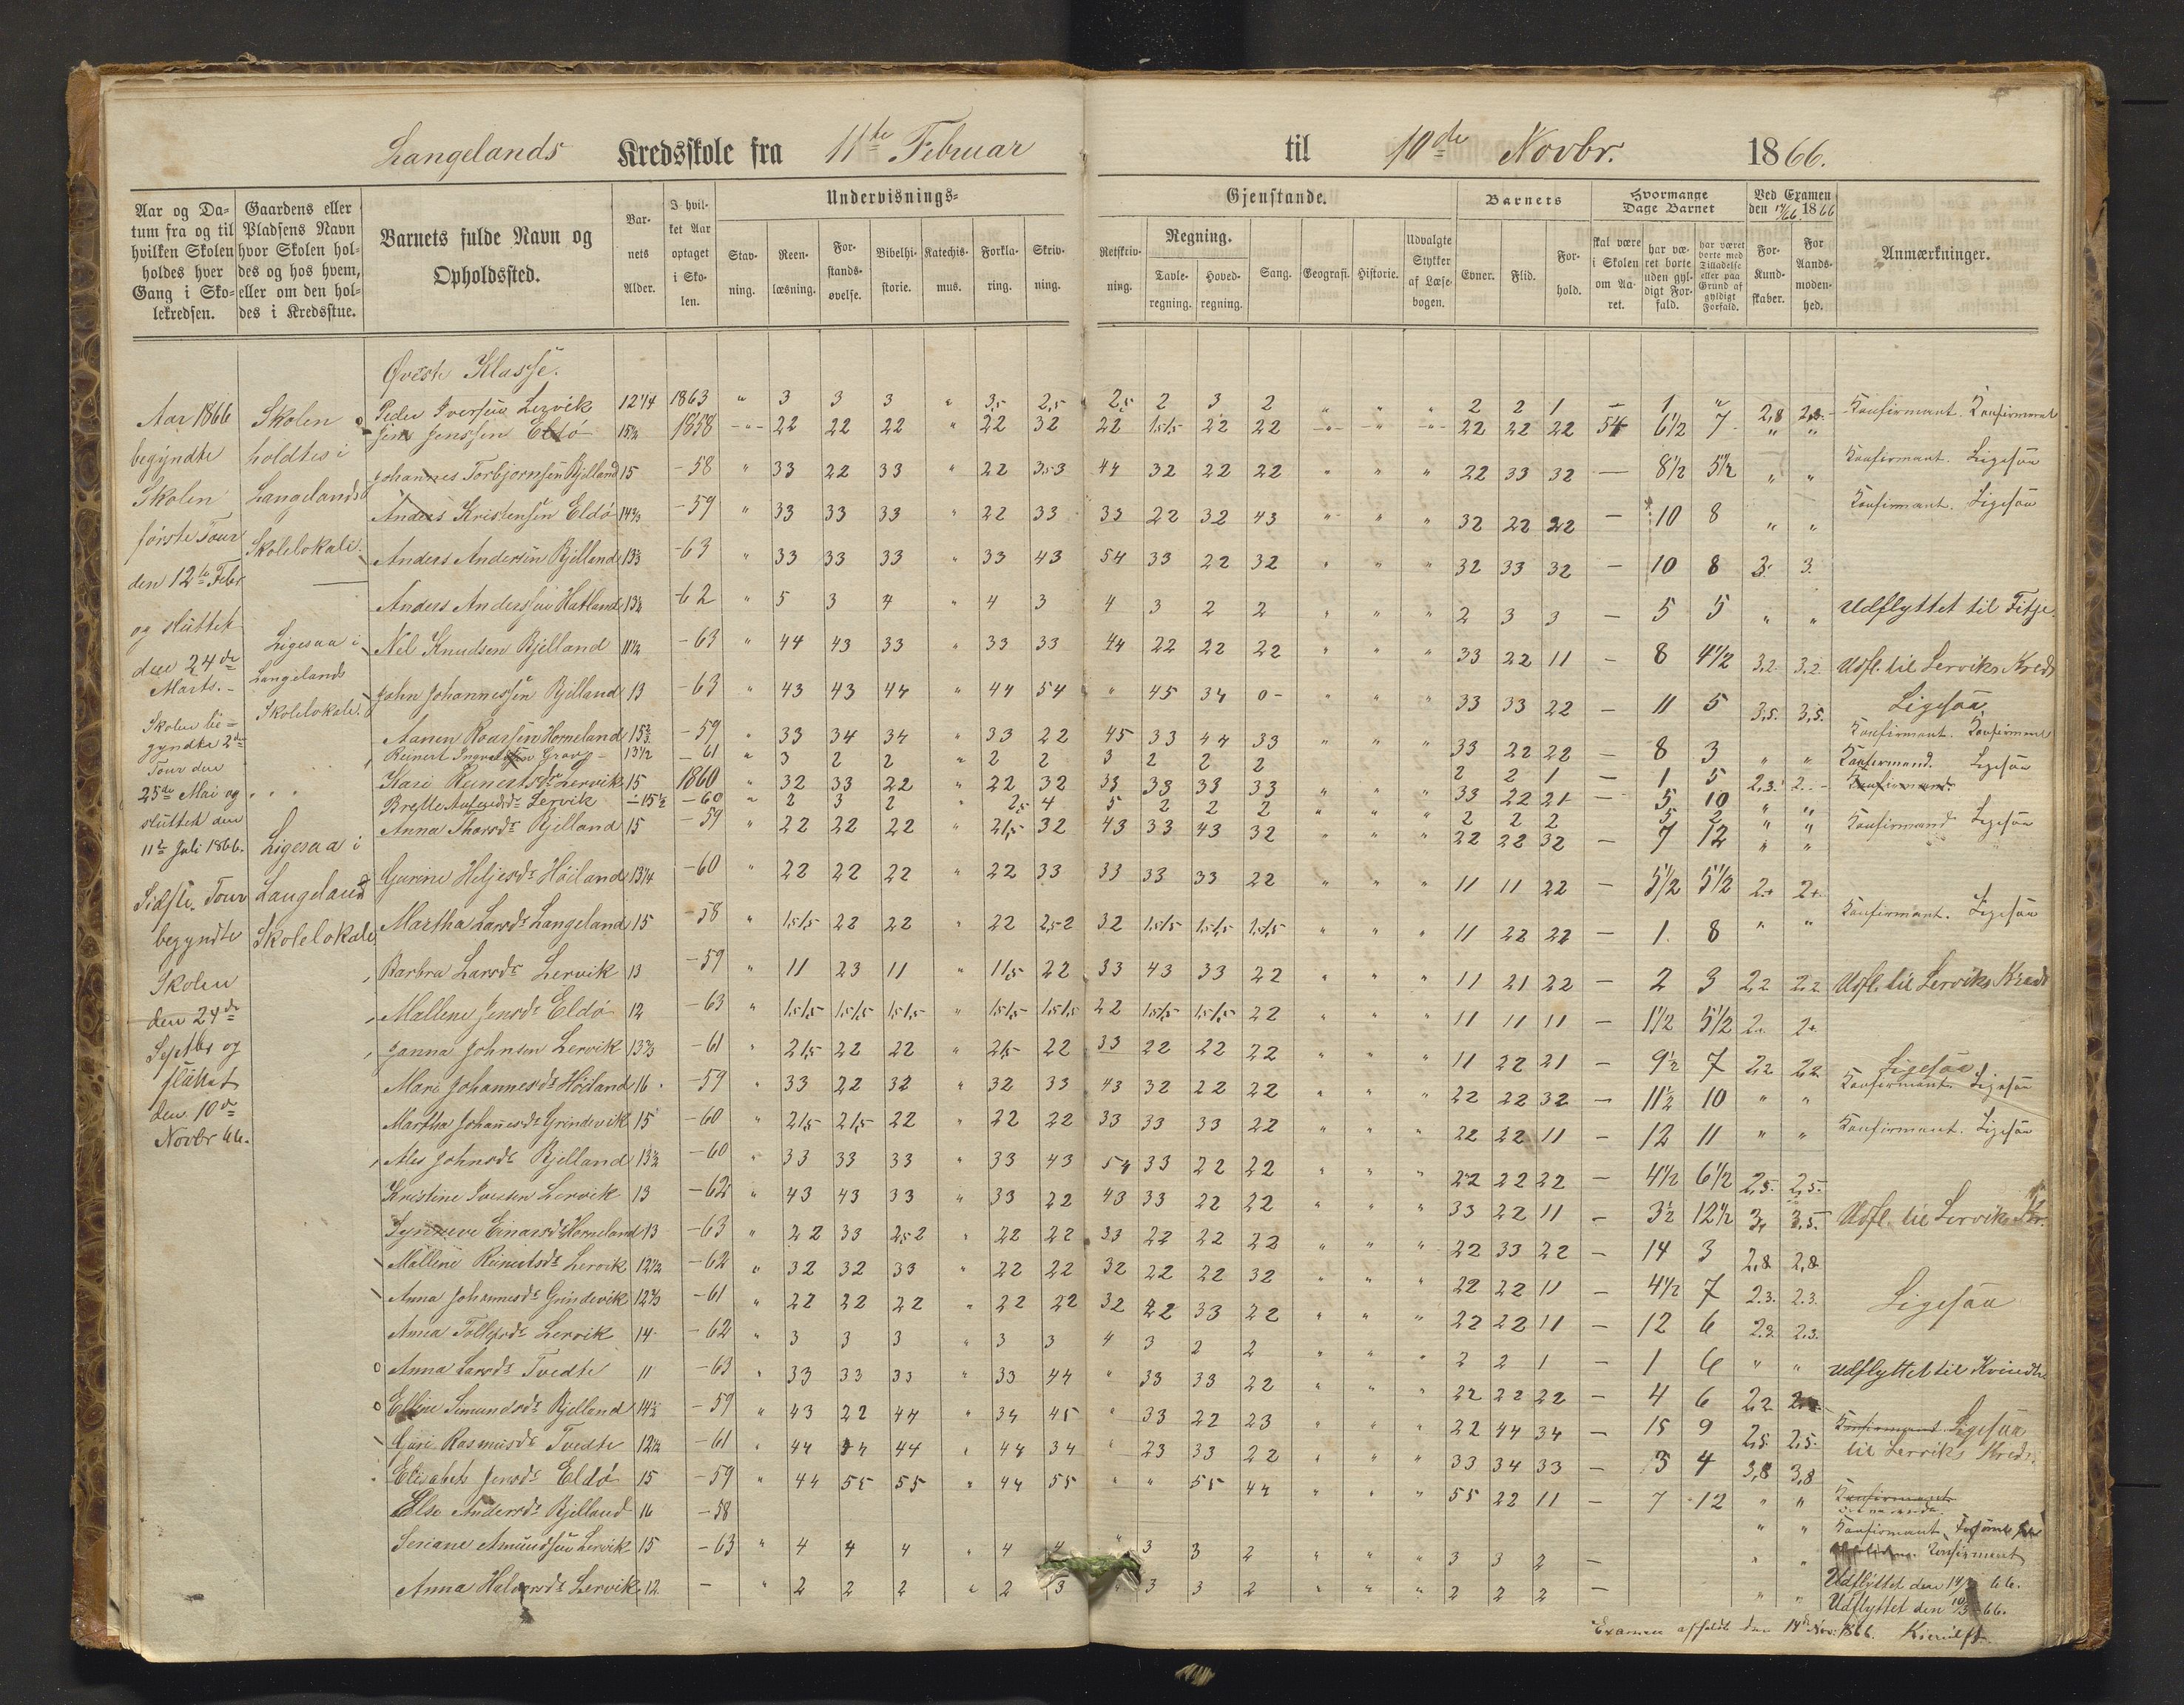 Langelands Kredsskole fra 11te Februar til 10de Novbr. 1866.
Aar og Datum fra og til hvilken Skolen holdes hver Gang i Skolekredsen.
Gaardens eller Pladsens Navn hvor Skolen holdes og hos hvem, eller om den holdes i Kredsstue.
Barnets fulde Navn og Opholdssted.
Barnets Alder.
I hvilket Aar optaget i Skolen.
Undervisnings-Gjenstande.
Stavning. Reenlæsning. Forstandsøvelse. Bibelhistorie. Katechismus. Forklaring. Skrivning.
Retskrivning. Regning. Tavleregning. Hovedregning. Sang. Geografi. Historie. Udvalgte Stykker af Læsebogen.
Barnets Evner. Flid. Forhold.
Hvormange Dage Barnet
skal være i Skolen om Aaret. har været borte uden gyldigt Forfald. har været borte med Tilladelse eller paa Grund af gyldigt Forfald.
Ved Examen den 14/11 66 1866
For Kundskaber. For Aandsmodenhed.
Anmærkninger.
Aar 1866
begyndte
Skolen
første Tour
den 12te Febr
og sluttet
den 24de
Marts.-
Skolen be-
gyndte 2den
Tour den
25de Mai og
sluttet den
11te Juli 1866.
Sidste Tour
begyndte
Skolen
den 24de
Septbr og
sluttet
den 10de
Novbr 66.
Skolen
holdtes i
Langelands
Skolelokale.
Ligesaa i
Langelands
Skolelokale.
Ligesaa i
Langeland
Skolelokale
Øverste Klasse.
Peder Iversen Lervik 12 1/4 1863 " 3 3 3 " 3,5 2,5 2,5 2 3 2 " " " 2 2 1 — 1 " 2,8 2,8 Konfirmant. Konfirmeret
Jens Jenssen Eldø 15 1858 22 22 22 " 22 32 22 1,5 1,5 22 22 22 22 22 54 6 1/2 7 " "
Johannes Torbjornsen Bjelland 15 -58 " 33 22 33 " 22 3,5 3 44 32 22 22 " " " 22 33 32 — 8 1/2 5 1/2 " " Konfirmant. Ligesaa
Anders Kristensen Eldø 14 -59 " 33 33 33 " 22 33 33 22 32 43 " " " 32 22 22 — 10 8 " " Konfirmant. Ligesaa
Anders Andersen Bjelland 13 -63 " 33 33 33 " 33 43 54 33 22 32 " " " 32 33 32 — 10 8 3. 3.
Anders Andersen Hatland 13 -62 " 5 3 4 " 4 3 4 3 2 2 " " " 2 3 3 — 5 5 " " Udflyttet til Fitje.
Nil Knudsen Bjelland 11 1/2 -63 " 44 43 33 " 33 33 44 22 22 22 " " " 33 22 11 — 8 4 1/2 3.2. 3.2. Udfl. til Lerviks Kreds
John Johannessen Bjelland 13 -63 " 43 43 44 " 44 54 " 45 34 0- " " " 33 33 22 — 11 5 3,5. 3,5. Ligesaa
Aanen Roarsen Horneland 15 -59 " 33 34 34 " 33 22 45 33 44 33 " " " 33 22 22 — 8 3 " " Konfirmant. Konfirmeret
Reinert 13 1/2 -61 " 3 2 2 " 2 2 3 2 2 2 2 2 1 — 1 5 2,3. 2.- Konfirmand. Ligesaa
Kari Reinertsdr Lervik 15 1860 " 32 33 22 " 22 32 33 33 33 33 " " " 33 22 21 — 5 10 " " Konfirmand
Lervik 15 1/2 -60 " 2 3 2 " 2,5 4 5 2 2 2 " " " 2 2 2 5 2 " "
Anna Thorsdr Bjelland 15 -59 " 22 22 22 " 21,5 32 43 33 43 32 " " " 22 22 32 — 7 12 " " Konfirmand Ligesaa
Gurine Heljesdr Höiland 13 1/4 -60 " 22 22 22 " 22 33 33 33 33 22 " " " 11 11 22 — 5 1/2 5 1/2 2+ 2+
Martha Larsdr Langeland 15 -58 " 1,5 1,5 22 22 " 22 2,5 2 32 1,5 1,5 1,5 1,5 1,5 1,5 " " " 11 22 22 — 1. 8 " " Konfirmant. Ligesaa
Barbra Larsdr Lervik 13 -59 " 11 23 11 " 11,5 22 33 43 33 22 " " " 11 21 22 — 2 3 2,2 2,2 Udfl. til Lerviks Kreds
Mallene Jensdr Eldø 12 -63 " 1,5 1,5 1,5 1,5 1,5 1,5 " 1,5 1,5 1,5 1,5 22 1,5 1,5 1,5 1,5 22 " " " 11 11 11 — 1 1/2 5 1/2 2. 2+
Janna Johnsen Lervik 13 -61 " 21,5 22 22 " 21,5 22 33 22 22 22 " " " 11 22 21 — 9 1/2 7 2,2 2,2 Ligesaa
Mari Johannesdr Höiland 16 -59 " 33 22 32 " 32 33 43 32 22 22 " " " 22 22 32 — 11 1/2 10 " " Konfirmant. Ligesaa
Martha Johanesdr Grindevik 15 -60 " 21,5 21,5 22 " 22 22 33 33 33 22 " " " 22 22 11 — 12 11 " " Konfirmant. Ligesaa
Ales Johnsdr Bjelland 13 1/2 -60 " 33 33 33 " 33 43 54 33 22 22 " " " 22 22 22 — 4 1/2 6 1/2 2,5. 2,5.
Kristine Iversen Lervik 13 -62 " 43 43 33 " 33 22 43 33 22 22 " " " 33 22 11 — 3 1/2 12 1/2 3,4 3.5. Udfl. til Lerviks Kr.
Synneve Einarsdr Horneland 13 -63 " 22 33 2,5 2 " 22 22 33 22 22 22 " " " 22 33 22 — 14 3 2,8 2,8
Mallene Reinertsdr Lervik 12 1/2 -62 " 32 32 33 " 22 22 32 22 22 32 " " " 22 22 11 — 4 1/2 7 2.3. 2.3. Ligesaa
Anna Johannesdr Grindevik 12 -61 " 22 22 22 " 22 22 32 22 33 22 " " " 22 22 11 — 12 6 2.3. 2.3.
Anna Tollefsdr Lervik 14 -62 " 3 3 3 " 3 3 4 3 2 2 " " " 2 2 1 — 1 6 " " Udflyttet til
Anna Larsdr Tvedte 11 -63 " 33 33 33 " 33 44 " 33 33 22 " " " 22 22 22 — 4 6 2,2
Elline Simundsdr Bjelland 14 1/2 -59 " 43 22 44 " 34 45 " 33 22 23 " " " 22 44 34 — 15 9 2,5. 2,5. Konfirmant Ligesaa
Guri Rasmusdr Tvedte 12 1/2 -61 " 44 44 44 " 44 34 " 23 33 22 " " " 33 34 33 — 3 4 3,8 3,8 til Lerviks Kreds.
Elisabet Jensdr Eldø 15 -59 " 44 55 55 " 44 55 " " 55 44 " " " 55 22 11 — 7 12 " " Konfirmant
Else Andersdr Bjelland 16 -58 " " Konfirmant
Seriane Amundsen Lervik 15 -63 " 4 4 4 " 4 4 " 3 3 2 " " " 3 3 2 — " " Konfirment
Udflyttet den 14/ 66.
Anna Halvorsdr Lervik 12 — " 2 2 2 " 2 3 " 3 3 2 " " " 2 2 2 — " " Udflyttet den 10/3 66.
Examen afholdt den 14de Nov: 1866. Kierulf